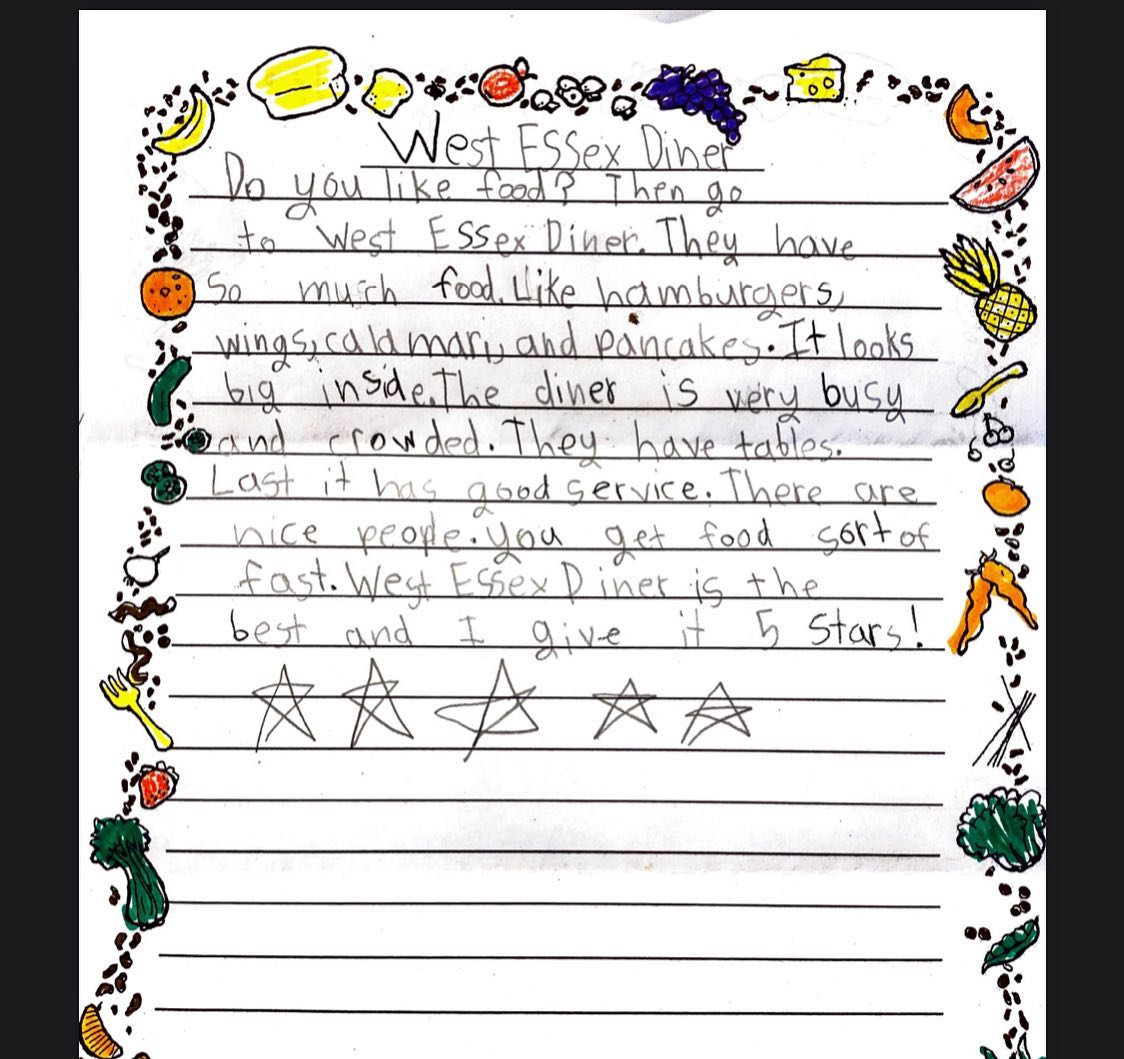 West Essex Diner
Do you like food? Then go
to West Essex Diner. They have
So much food. Like hamburgers,
wings, calamari, and pancakes. It looks
big inside. The diner is very busy
and crowded. They have tables.
Last it has good service. There are
nice people. you get food sort of
fast. West Essex Diner is the
best and I give it 5 Stars!